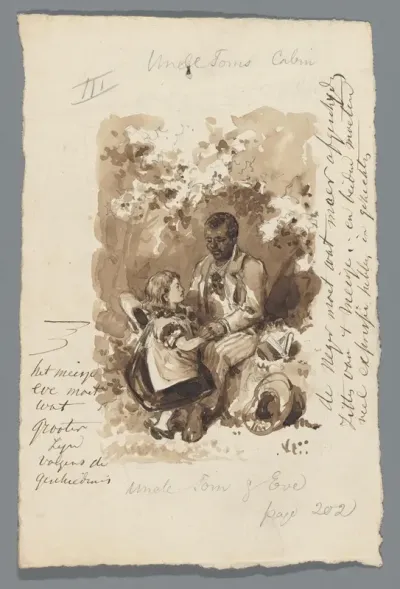 Uncle Toms Cabin
III
de neger moet wat meer
zitten van 't meisje en beiden moeten
veel expressie hebben in
het meisje
eve moet
wat
grooter
zijn
volgens de
geschiedenis
Uncle Tom & Eve
page 202